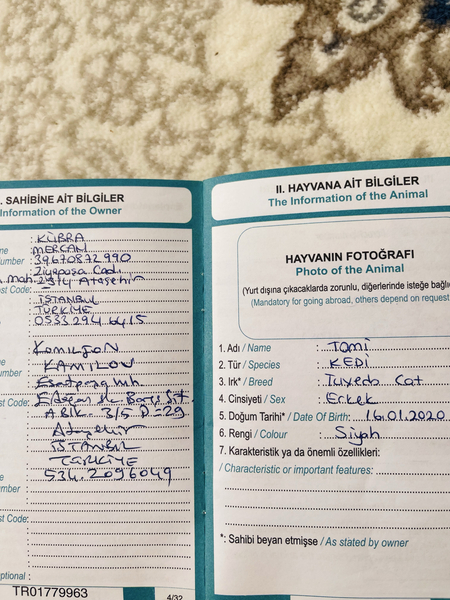 . SAHİBİNE AİT BİLGİLER
Information of the Owner
: KÜBRA
me : MERCAN
umber : 39670872990
Ziyapaşa Cad.
mah. 2314 Ataşehir
st Code:
: İSTANBUL
: TÜRKİYE
: 0533 294 6415
: KOMILJON
me : KAMILOV
umber :
st Code:
A BLK 3/5 D=29
Ataşehir
: İSTANBUL
: TÜRKİYE
: 534.2096049
me :
umber :
st Code:
ptional :
TR01779963
4/32
II. HAYVANA AİT BİLGİLER
The Information of the Animal
HAYVANIN FOTOĞRAFI
Photo of the Animal
(Yurt dışına çıkacaklarda zorunlu, diğerlerinde isteğe bağlı
(Mandatory for going abroad, others depend on request
1. Adı / Name : TOMİ
2. Tür / Species : KEDİ
3. Irk* / Breed : Tuxedo Cat
4. Cinsiyeti / Sex : Erkek
5. Doğum Tarihi* / Date Of Birth: 16.01.2020
6. Rengi / Colour : Siyah
7. Karakteristik ya da önemli özellikleri:
/ Characteristic or important features:
*: Sahibi beyan etmişse / As stated by owner